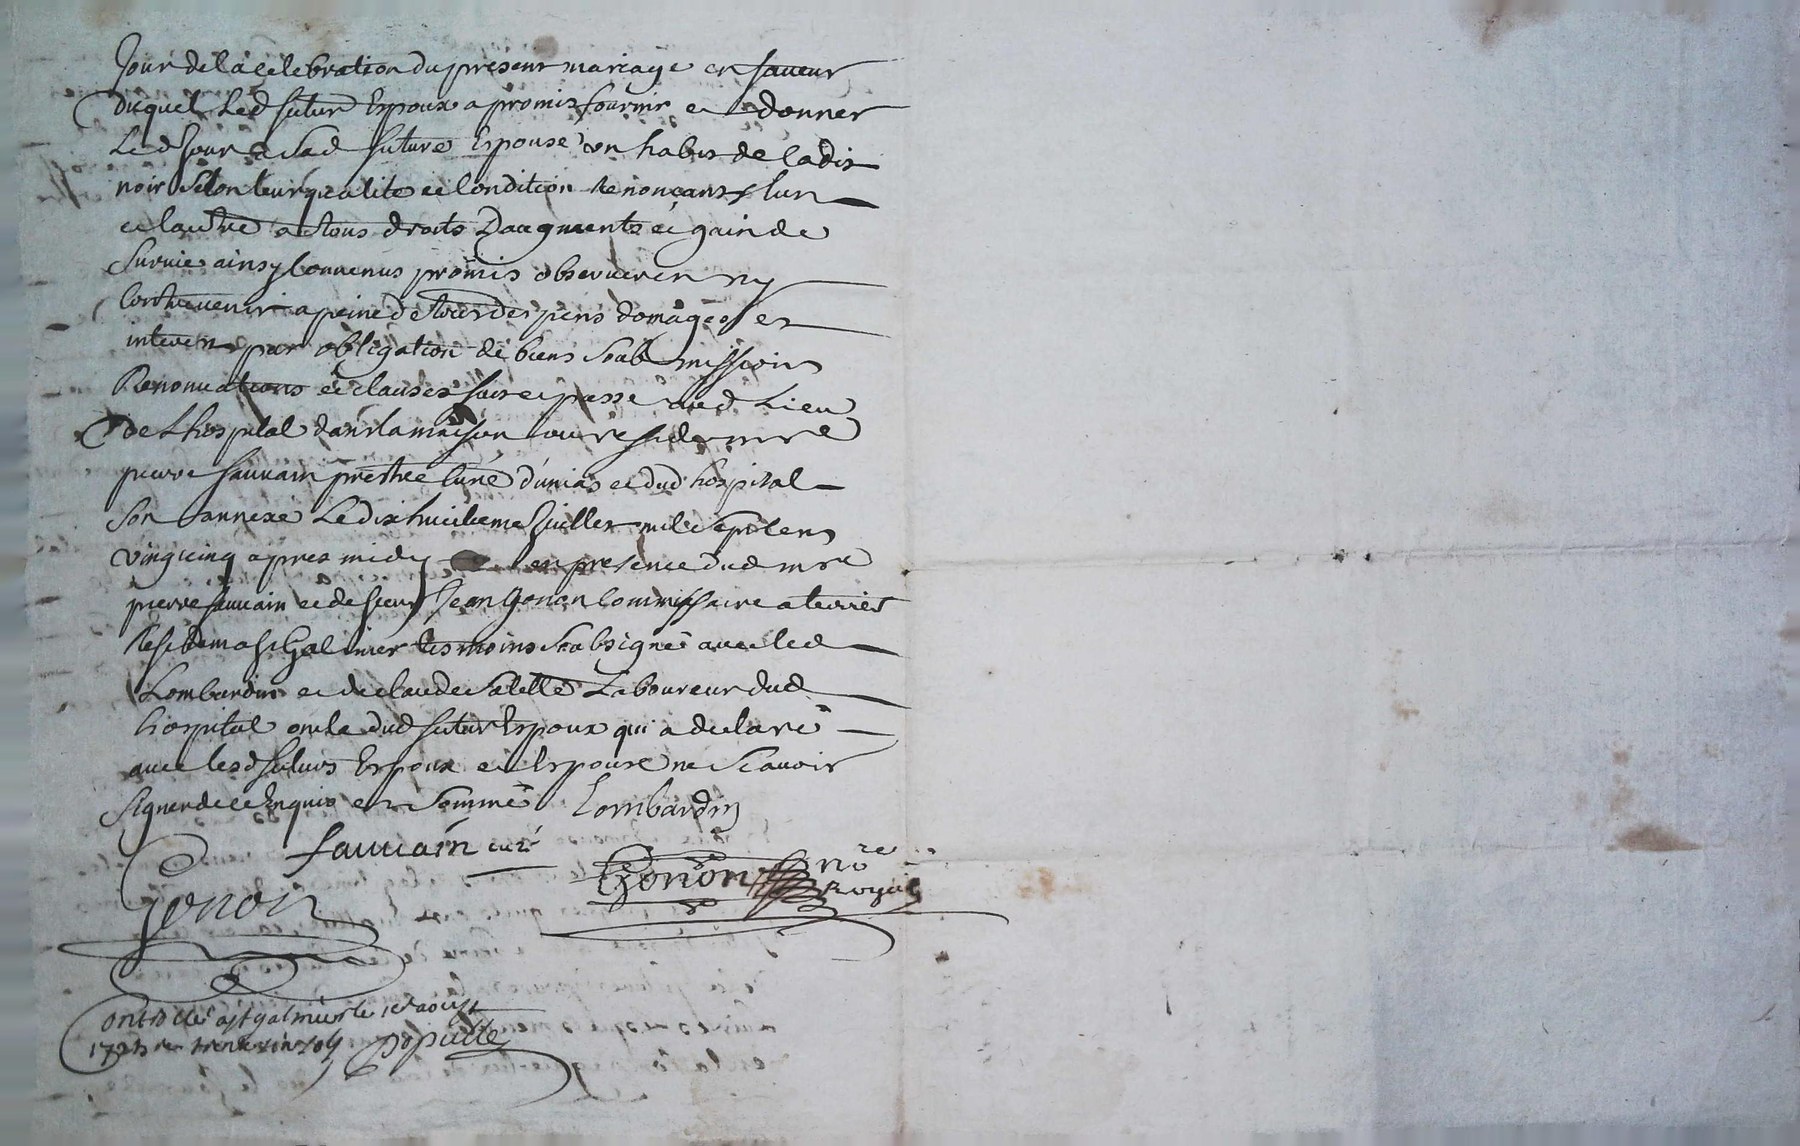 Jour de la celebration du present mariage en faveur
duquel Led futur Espoux a promis fournir et donner
Led Jour a Sad future Espouse un habit de Cadis
noir selon leur qualite et Condition Renonçants lun
et lautre a tous droits Daugments et gain de
Survie ainsy Convenus promis observer en ny
Contrevenir a peine de tous despens domages et
interets par obligation de biens Soubmissions
Renonciations et clauses fait et passé aud Lieu
de Lhospital dans la maison ou reside mre
pierre fauvain prestre Curé d'unias et dud hospital
Son annexe Le dix huictieme Juillet mil Sept Cens
vingt cinq apres midy en presence dud mre
pierre fauvain et de sieur Jean Gonon Commissaire a terriers
Residt a St Galmier tesmoins Soubsignés avec led
Lombardin et de claude Laboureur dud
hospital oncle dud futur Espoux qui a declaré
avec lesd futurs Espoux et Espouse ne Scavoir
Signer de ce Enquis et Sommé Lombardin
fauvain curé
Gonon nore
Royal
Gonon
Controllé a St galmier le 1er aoust
1725